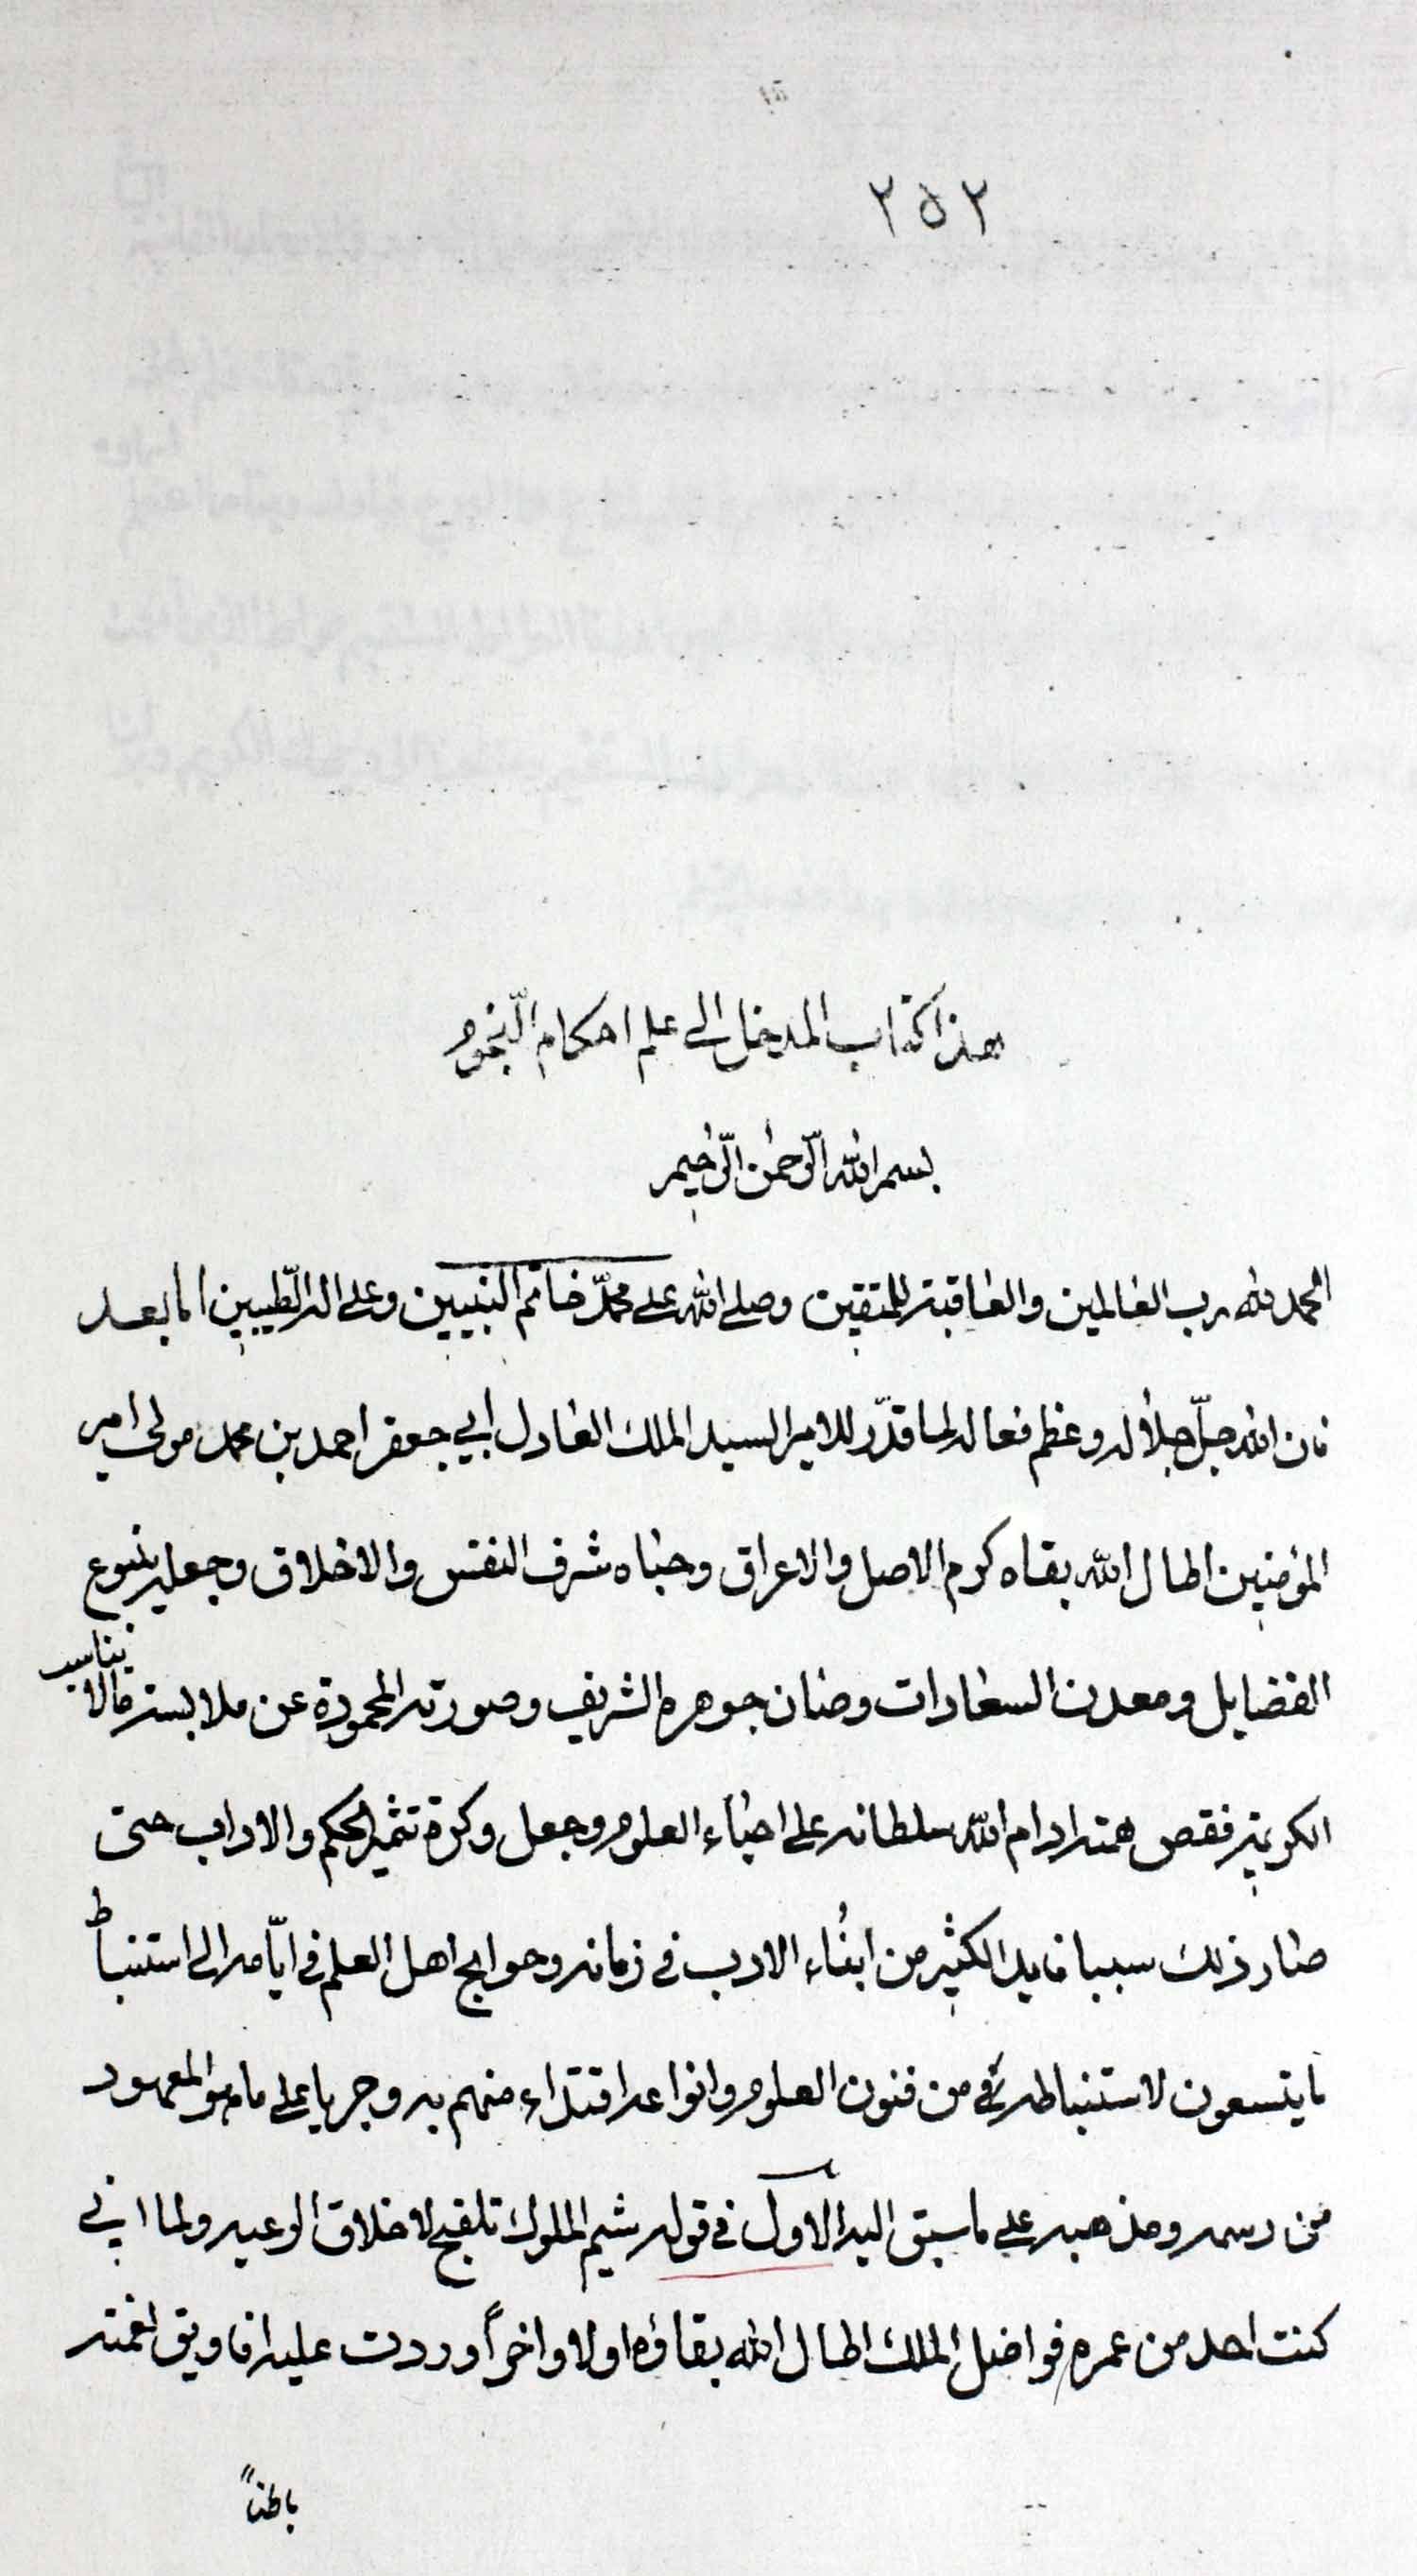 ٢٥٢
هذا كتاب المدخل الى علم احكام النّجوم
بسم الله الرّحمن الرّحيم
الحمد لله رب العالمين والعاقبة للمتقين وصلى الله على محمّد خاتم النبيين وعلى اله الطّيبين اما بعد
فان الله جلّ جلاله وعظم فعاله لما قدّر للامير السيد الملك العادل ابي جعفر احمد بن محمد مولى امير
المؤمنين اطال الله بقاه كرم الاصل والاعراق وحباه شرف النفس والاخلاق وجعله ينبوع
الفضايل ومعدن السعادات وصان جوهره الشريف وصورته المحمودة عن ملابسة مالا يناسب
الكريمة فقص همته ادام الله سلطانه على احياء العلوم وجعل وكرة تثمير الحكم والاداب حتى
صار ذلك سببا الكثير من ابناء الادب في زمانه وحوايج اهل العلم في ايّامه الى استنباط
ما يتسعون لاستنباطه من فنون العلوم وانواعه اقتداء منهم به وجريا على ما هو المعهود
من رسمه ومذهبه على ما سبق اليه الاول في قوله شيم الملوك تلقيح لاخلاق الرعيه ولما اني
كنت احد من عمره فواضل الملك اطال الله بقاؤه اولا واخراً ووردت عليه افاويق نعمته
باطناً